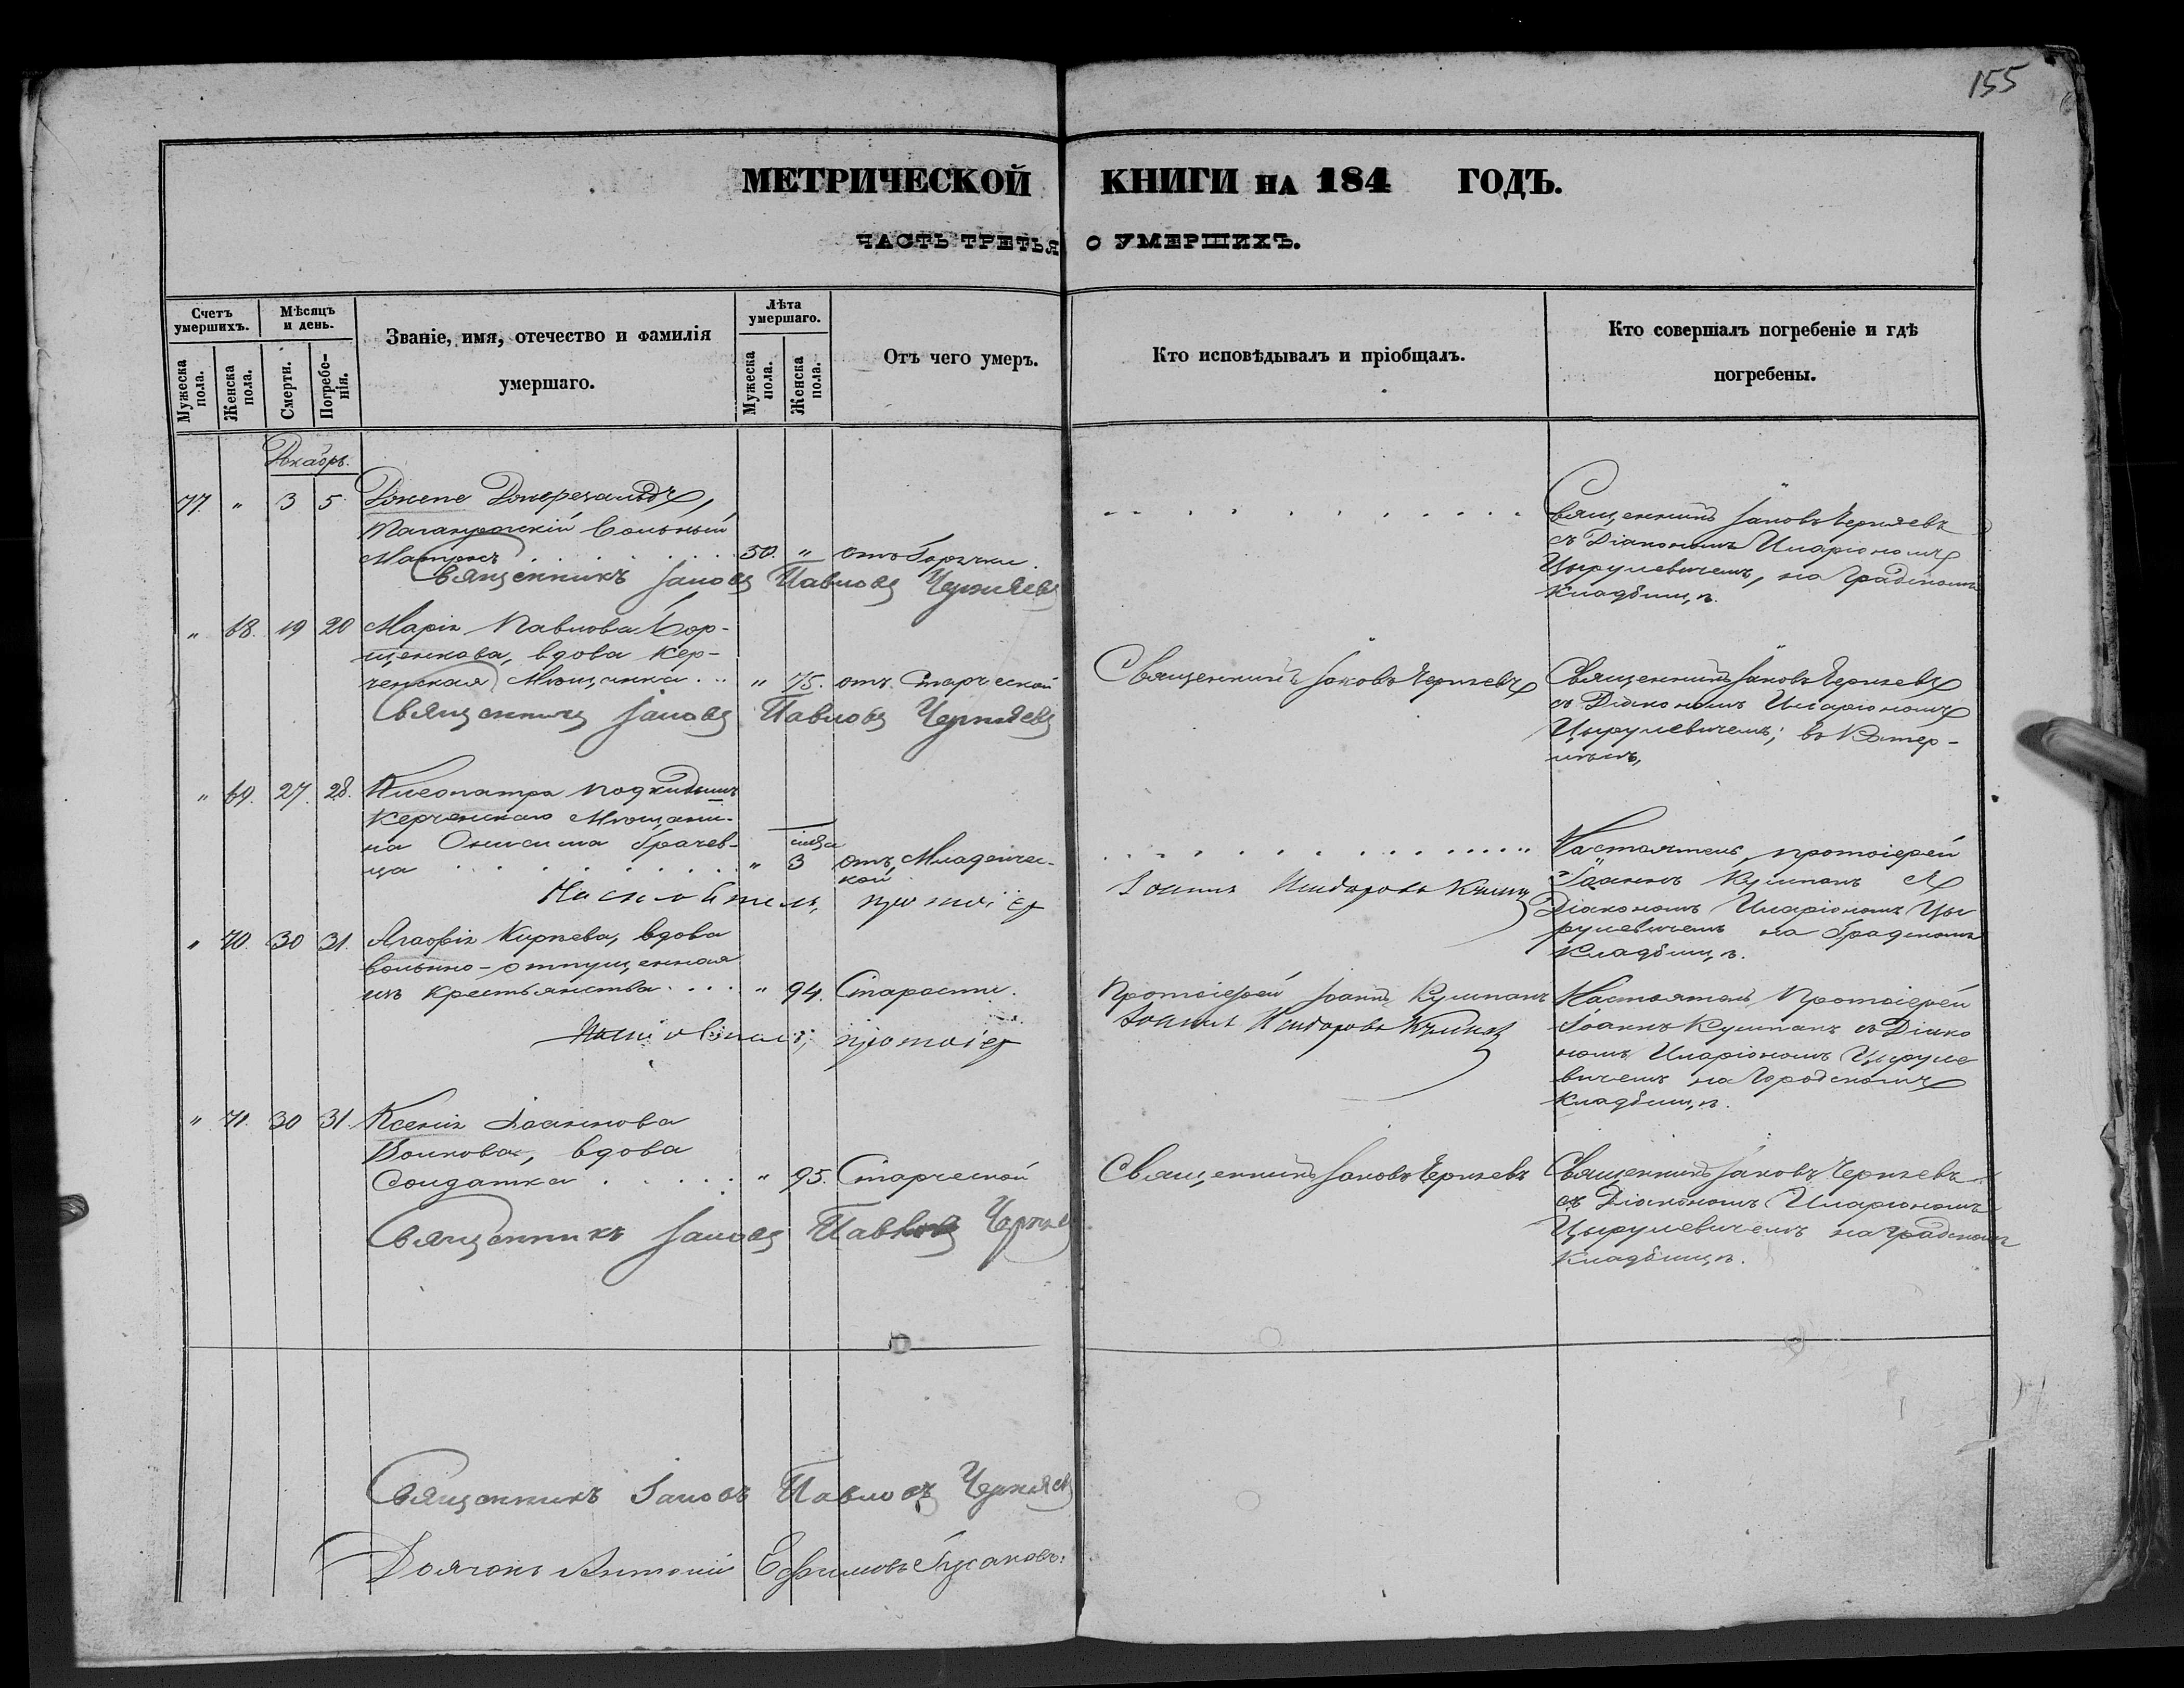 155
МЕТРИЧЕСКОЙ КНИГИ НА 184 ГОДЪ.
ЧАСТЬ ТРЕТЬЯ О УМЕРШИХЪ.
Счетъ умершихъ.
Мужеска пола.
Женска пола.
Мѣсяцъ и день.
Смерти.
Погребенія.
Званіе, имя, отечество и фамилія
умершаго.
Лѣта умершаго.
Мужеска пола.
Женска пола.
Отъ чего умеръ.
Кто исповѣдывалъ и пріобщалъ.
Кто совершалъ погребеніе и гдѣ
погребены.
Декабрь.
77. " 3 5.
Таганрогскій Вольный
Матросъ 50. " отъ Горячки.
Священникъ Іаковъ Черняевъ
съ Діакономъ Иларіономъ
Цырулевичемъ, на Градскомъ
Кладбищѣ.
Священникъ Іаковъ Павловъ Черняевъ
" 68. 19 20 Марія Павлова Бор-
щенкова, вдова Кер-
ченская Мѣщанка " 75. отъ Старческой
Священникъ Іаковъ Черняевъ
Священникъ Іаковъ Черняевъ
съ Діакономъ Иларіономъ
Цырулевичемъ; въ Катер-
Священникъ Іаковъ Павловъ Черняевъ
" 69. 27. 28. Клеопатра подкидышъ
Керченскаго Мѣщани-
на Онисима Грачев-
ца " 3 отъ Младенчес-
кой
Настоятель, протоіерей
Іоаннъ Кумпанъ съ
Діакономъ Иларіономъ Цы
рулевичемъ на Градскомъ
Кладбищѣ.
Настоятель, протоіер
" 70. 30 31. Агафія Киряева, вдова
вольно-отпущенная
изъ крестьянства " 94. Старости.
Протоіерей Іоаннъ Кумпанъ
Настоятель Протоіерей
Іоаннъ Кумпанъ съ Діако
номъ Иларіономъ Цыруле
вичемъ на Городскомъ
Кладбищѣ.
протоіер
" 71. 30 31. Ксенія Іоаннова
Волкова, вдова
Солдатка " 95. Старческой
Священникъ Іаковъ Черняевъ
Священникъ Іаковъ Черняевъ
съ Діакономъ Иларіономъ
Цырулевичемъ на Градскомъ
Кладбищѣ.
Священникъ Іаковъ Павловъ Черняев
Священникъ Іаковъ Павловъ Черняевъ
Дьячокъ Антоній Ефимовъ Гусаковъ.